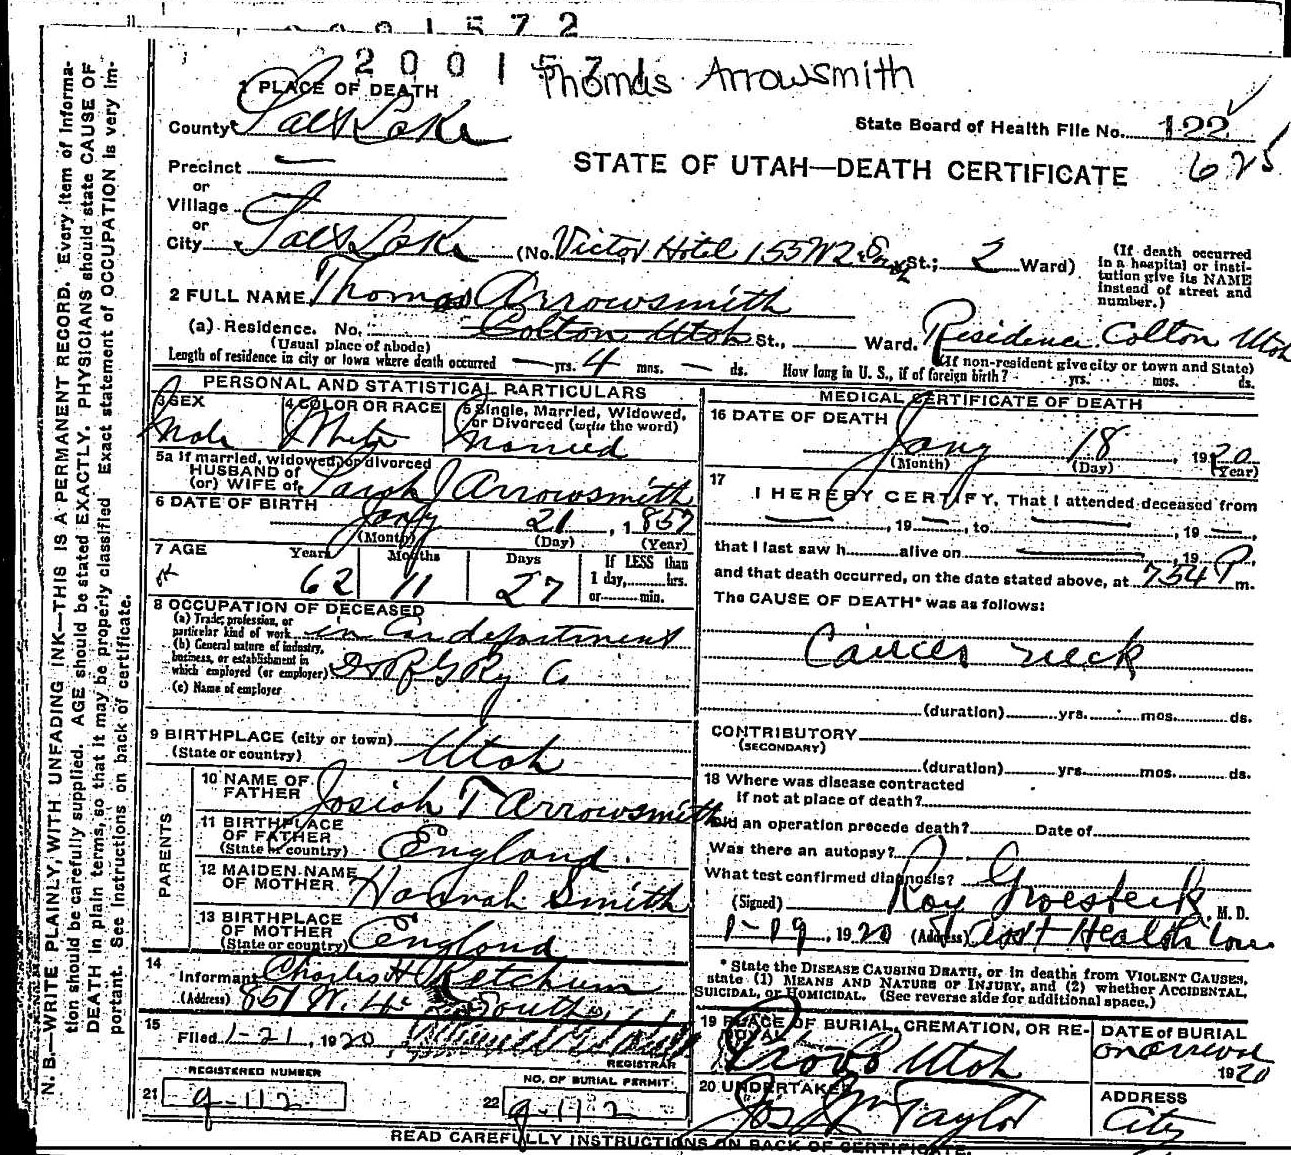 572
2001571
Thomas Arrowsmith
1 PLACE OF DEATH
County Salt Lake
State Board of Health File No. 122
625
STATE OF UTAH—DEATH CERTIFICATE
Precinct
or
Village
or
City Salt Lake (No. Victor Hotel 155 W 2 St.; 2 Ward)
(If death occurred in a hospital or insti-
tution give its NAME
instead of street and
number.)
2 FULL NAME Thomas Arrowsmith
(a) Residence. No. Colton Utah St., Ward. Residence Colton Utah
(Usual place of abode) (If non-resident give city or town and State)
Length of residence in city or town where death occurred — yrs. 4 mos. — ds. How long in U. S., if of foreign birth? yrs. mos. ds.
PERSONAL AND STATISTICAL PARTICULARS
3 SEX
Male
4 COLOR OR RACE
White
5 Single, Married, Widowed,
or Divorced (write the word)
Married
5a If married, widowed, or divorced
HUSBAND of
(or) WIFE of Sarah J Arrowsmith
6 DATE OF BIRTH
Jany 21, 1857
(Month) (Day) (Year)
7 AGE Years Months Days If LESS than
62 11 27 1 day, hrs.
or min.
8 OCCUPATION OF DECEASED
(a) Trade, profession, or
particular kind of work in Car department
(b) General nature of industry,
business, or establishment in
which employed (or employer) D & R G Ry Co
(c) Name of employer
9 BIRTHPLACE (city or town)
(State or country) Utah
PARENTS
10 NAME OF
FATHER Josiah T Arrowsmith
11 BIRTHPLACE
OF FATHER
(State or country) England
12 MAIDEN NAME
OF MOTHER Hannah Smith
13 BIRTHPLACE
OF MOTHER
(State or country) England
14
Informant Charles H Ketchum
(Address) 851 W. 4th South
15
Filed 1-21, 1920
REGISTRAR
REGISTERED NUMBER
21 9-112
NO. OF BURIAL PERMIT
22 9-112
MEDICAL CERTIFICATE OF DEATH
16 DATE OF DEATH
Jany 18, 1920
(Month) (Day) (Year)
17
I HEREBY CERTIFY, That I attended deceased from
—, 19 —, to —, 19 —,
that I last saw h alive on —, 19
and that death occurred, on the date stated above, at 754 P m.
The CAUSE OF DEATH* was as follows:
Cancer neck
(duration) yrs. mos. ds.
CONTRIBUTORY
(SECONDARY)
(duration) yrs. mos. ds.
18 Where was disease contracted
if not at place of death?
Did an operation precede death? Date of
Was there an autopsy?
What test confirmed diagnosis?
(Signed) Roy Groesbeck, M. D.
1-19, 1920 (Address) Asst Health Com
* State the DISEASE CAUSING DEATH, or in deaths from VIOLENT CAUSES,
state (1) MEANS AND NATURE OF INJURY, and (2) whether ACCIDENTAL,
SUICIDAL, or HOMICIDAL. (See reverse side for additional space.)
19 PLACE OF BURIAL, CREMATION, OR RE-
MOVAL
Provo Utah
DATE of BURIAL
on arrival
1920
20 UNDERTAKER
Jos Wm Taylor
ADDRESS
City
READ CAREFULLY INSTRUCTIONS ON BACK OF CERTIFICATE.
N. B.—WRITE PLAINLY, WITH UNFADING INK—THIS IS A PERMANENT RECORD. Every item of informa-
tion should be carefully supplied. AGE should be stated EXACTLY. PHYSICIANS should state CAUSE OF
DEATH in plain terms, so that it may be properly classified. Exact statement of OCCUPATION is very im-
portant. See instructions on back of certificate.